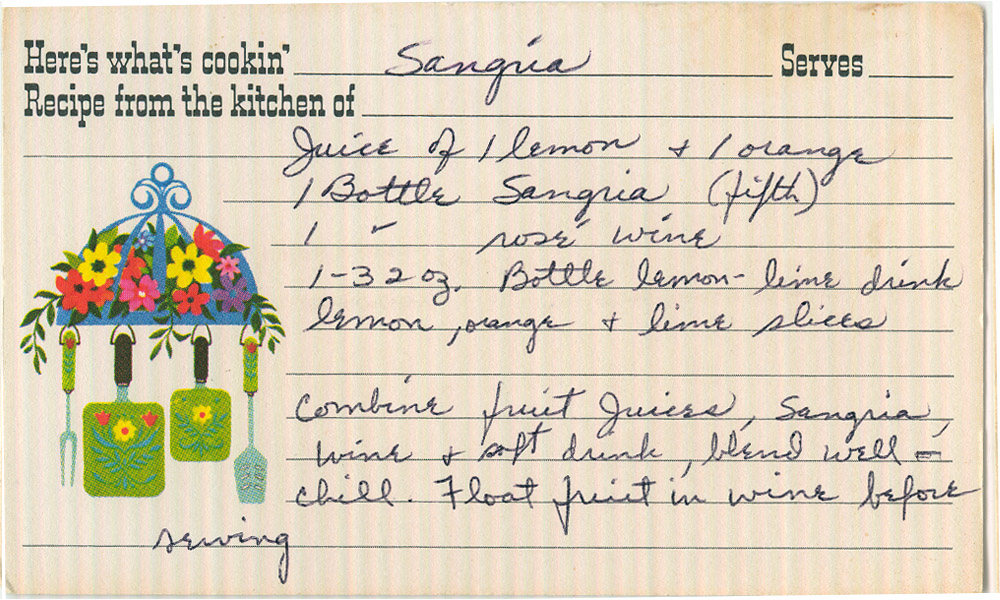 Here's what's cookin' Sangria Serves
Recipe from the kitchen of
Juice of 1 lemon + 1 orange
1 Bottle Sangria (fifth)
1 " rosé wine
1-32 oz. Bottle lemon-lime drink
lemon, orange + lime slices
Combine fruit Juices, Sangria,
wine + soft drink, blend well -
chill. Float fruit in wine before
serving